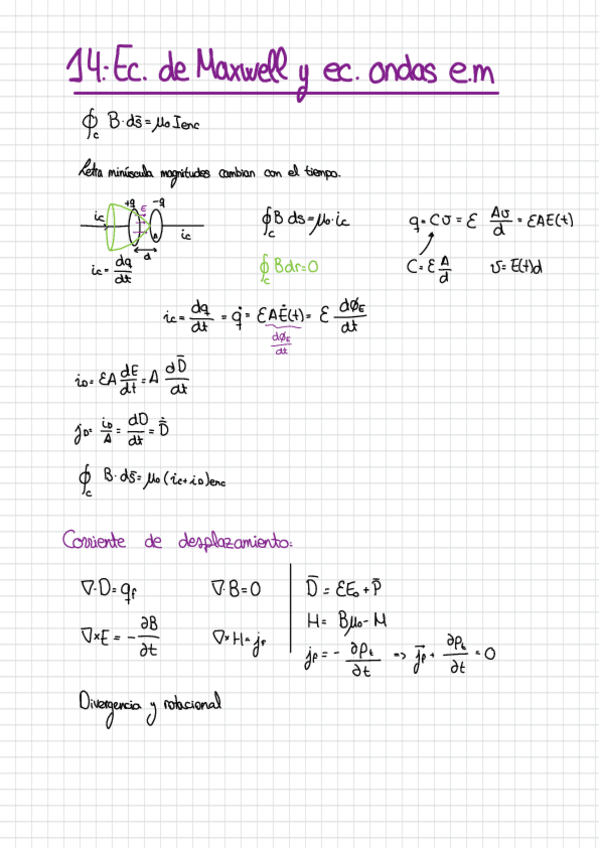 14. Ec. de Maxwell y ec. ondas e.m
∮_c B·ds̄ = μ₀ I enc
Letra minúscula magnitudes cambian con el tiempo.
+q -q
E
ic ic
d
∮_c B ds = μ₀·ic
q = Cv = ε Av/d = εAE(t)
ic = dq/dt
∮_c B dr = 0
C = ε A/d
v = E(t)d
ic = dq/dt = q̇ = εAĖ(t) = ε dϕ_E/dt
dϕ_E/dt
i_D = εA dE/dt = A dD̄/dt
j_D = i_D/A = dD/dt = D̄̇
∮_c B·ds̄ = μ₀(ic+i_D)enc
Corriente de desplazamiento:
∇·D = q_f ∇·B = 0 D̄ = εE₀ + P̄
∇×E = -∂B/∂t ∇×H = j_f H = Bμ₀ - M
j_f = -∂ρ_t/∂t => j̄_f + ∂ρ_t/∂t = 0
Divergencia y rotacional